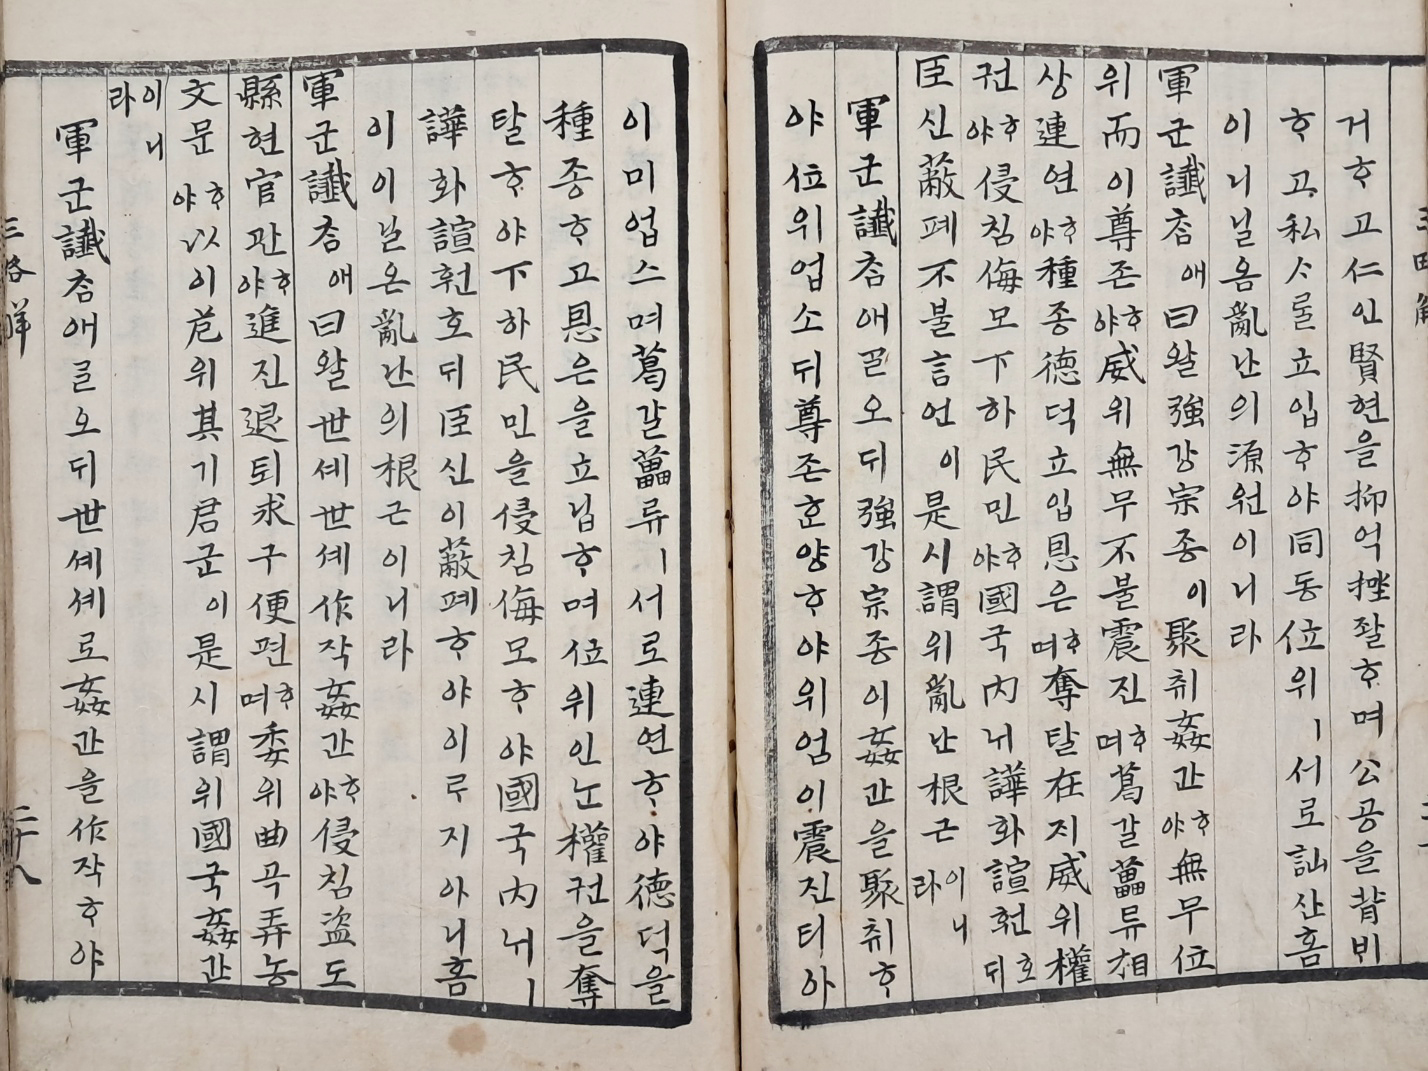 거ᄒᆞ고仁인賢현을抑억挫좔ᄒᆞ며公공을背ᄇᆡ
ᄒᆞ고私ᄉᆞᄅᆞᆯ立입ᄒᆞ야同동位위ㅣ서로訕산홈
이니닐옴亂난의源원이니라
軍군讖ᄎᆞᆷ애曰왈強강宗종이聚취姦간ᄒᆞ야無무位
위而이尊존ᄒᆞ야威위無무不불震진ᄒᆞ며葛갈藟류相
상連연ᄒᆞ야種종德덕立입恩은ᄒᆞ며奪탈在ᄌᆡ威위權
권ᄒᆞ야侵침侮모下하民민ᄒᆞ야國국內ᄂᆡ譁화諠훤호ᄃᆡ
臣신蔽폐不불言언이是시謂위亂난根근이니라
軍군讖ᄎᆞᆷ애ᄀᆞᆯ오ᄃᆡ強강宗종이姦간을聚취ᄒᆞ
야位위업소ᄃᆡ尊존ᄒᆞᆫ양ᄒᆞ야위엄이震진티아
이미업스며葛갈藟류ㅣ서로連연ᄒᆞ야德덕을
種종ᄒᆞ고恩은을立닙ᄒᆞ며位위인ᄂᆞᆫ權권을奪
탈ᄒᆞ야下하民민을侵침侮모ᄒᆞ야國국內ᄂᆡㅣ
譁화諠훤호ᄃᆡ臣신이蔽폐ᄒᆞ야이ᄅᆞ지아니홈
이이닐온亂난의根근이니라
軍군讖ᄎᆞᆷ애曰왈世셰世셰作작姦간ᄒᆞ야侵침盜도
縣현官관ᄒᆞ야進진退퇴求구便편ᄒᆞ며委위曲곡弄농
文문ᄒᆞ야以이危위其기君군이是시謂위國국姦간
이니라
軍군讖ᄎᆞᆷ애ᄀᆞᆯ오ᄃᆡ世셰셰로姦간을作작ᄒᆞ야
三略解 二十八